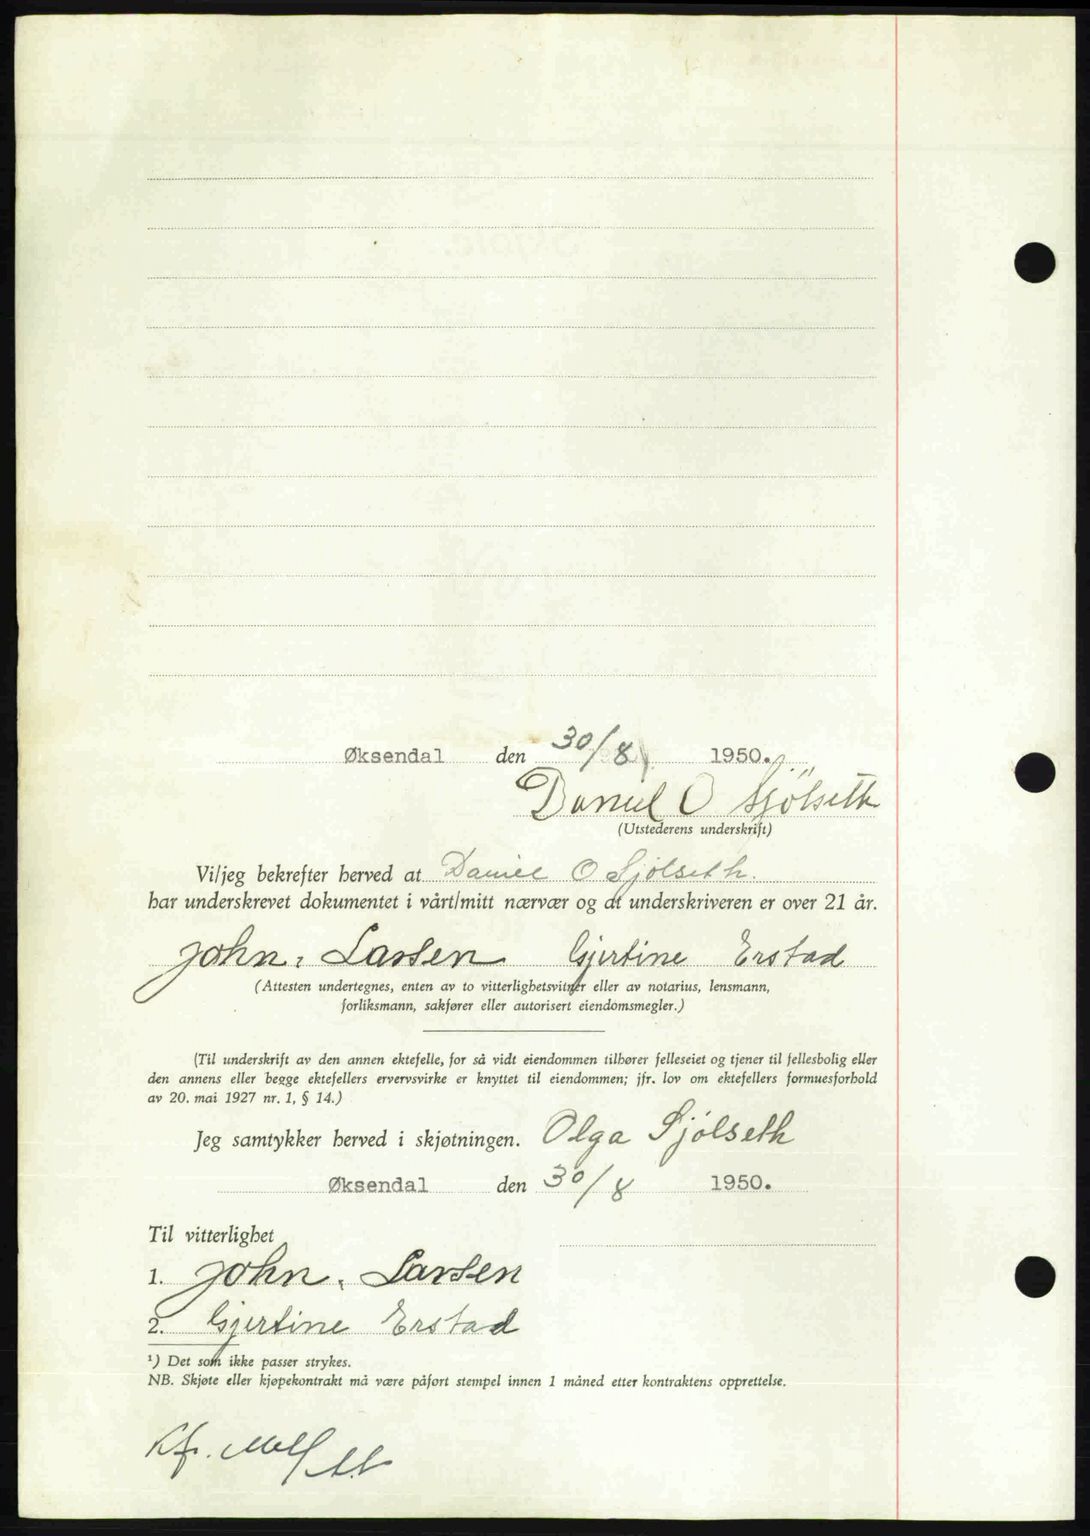 Øksendal den 30/8 1950.
Daniel O Sjölseth
(Utstederens underskrift)
Vi/jeg bekrefter herved at Daniel O Sjölseth.
har underskrevet dokumentet i vårt/mitt nærvær og at underskriveren er over 21 år.
John. Larsen Gjertine Erstad
(Attesten undertegnes, enten av to vitterlighetsvitner eller av notarius, lensmann,
forliksmann, sakfører eller autorisert eiendomsmegler.)
(Til underskrift av den annen ektefelle, for så vidt eiendommen tilhører felleseiet og tjener til fellesbolig eller
den annens eller begge ektefellers ervervsvirke er knyttet til eiendommen; jfr. lov om ektefellers formuesforhold
av 20. mai 1927 nr. 1, § 14.)
Jeg samtykker herved i skjøtningen. Olga Sjólseth
Øksendal den 30/8 1950.
Til vitterlighet
1. John. Larsen
2. Gjertine Erstad
¹) Det som ikke passer strykes.
NB. Skjøte eller kjøpekontrakt må være påført stempel innen 1 måned etter kontraktens opprettelse.
Kf.